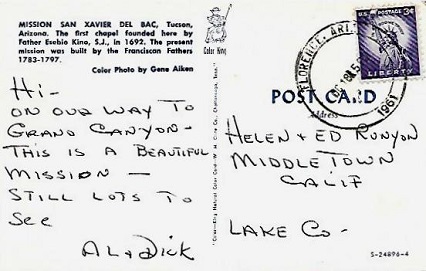 MISSION SAN XAVIER DEL BAC, Tucson,
Arizona. The first chapel founded here by
Father Esebio Kino, S.J., in 1692. The present
mission was built by the Franciscan Fathers
1783-1797.
Color Photo by Gene Aiken
Color King
Hi-
ON OUR WAY TO
GRAND CANYON-
THIS IS A BEAUTIFUL
MISSION -
STILL LOTS TO
SEE
AL & DICK
POST CARD
Address
FLORENCE, ARIZ.
1961
U.S. POSTAGE 3¢
LIBERTY
HELEN & ED RUNYON
MIDDLETOWN
CALIF
LAKE CO-
S-24896-4